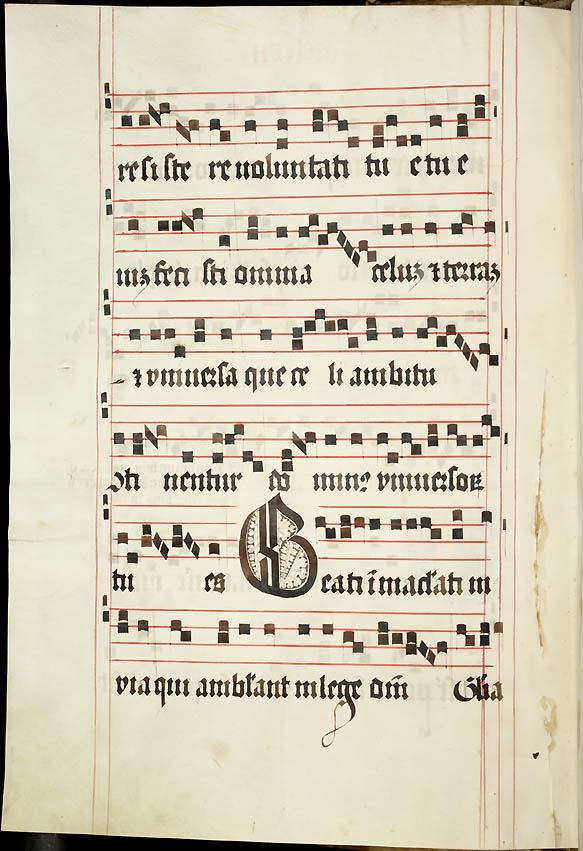 resiste re voluntati tu e tu e
niz feci sti omnia celuz ⁊ terraz
⁊ vniuersa que ce li ambitu
9ti nentur dō minꝰ vniuersoꝝ
tu es Beati īmacl̵ati in
via qui ambl̵ant in lege dn̄i Gl̵ia